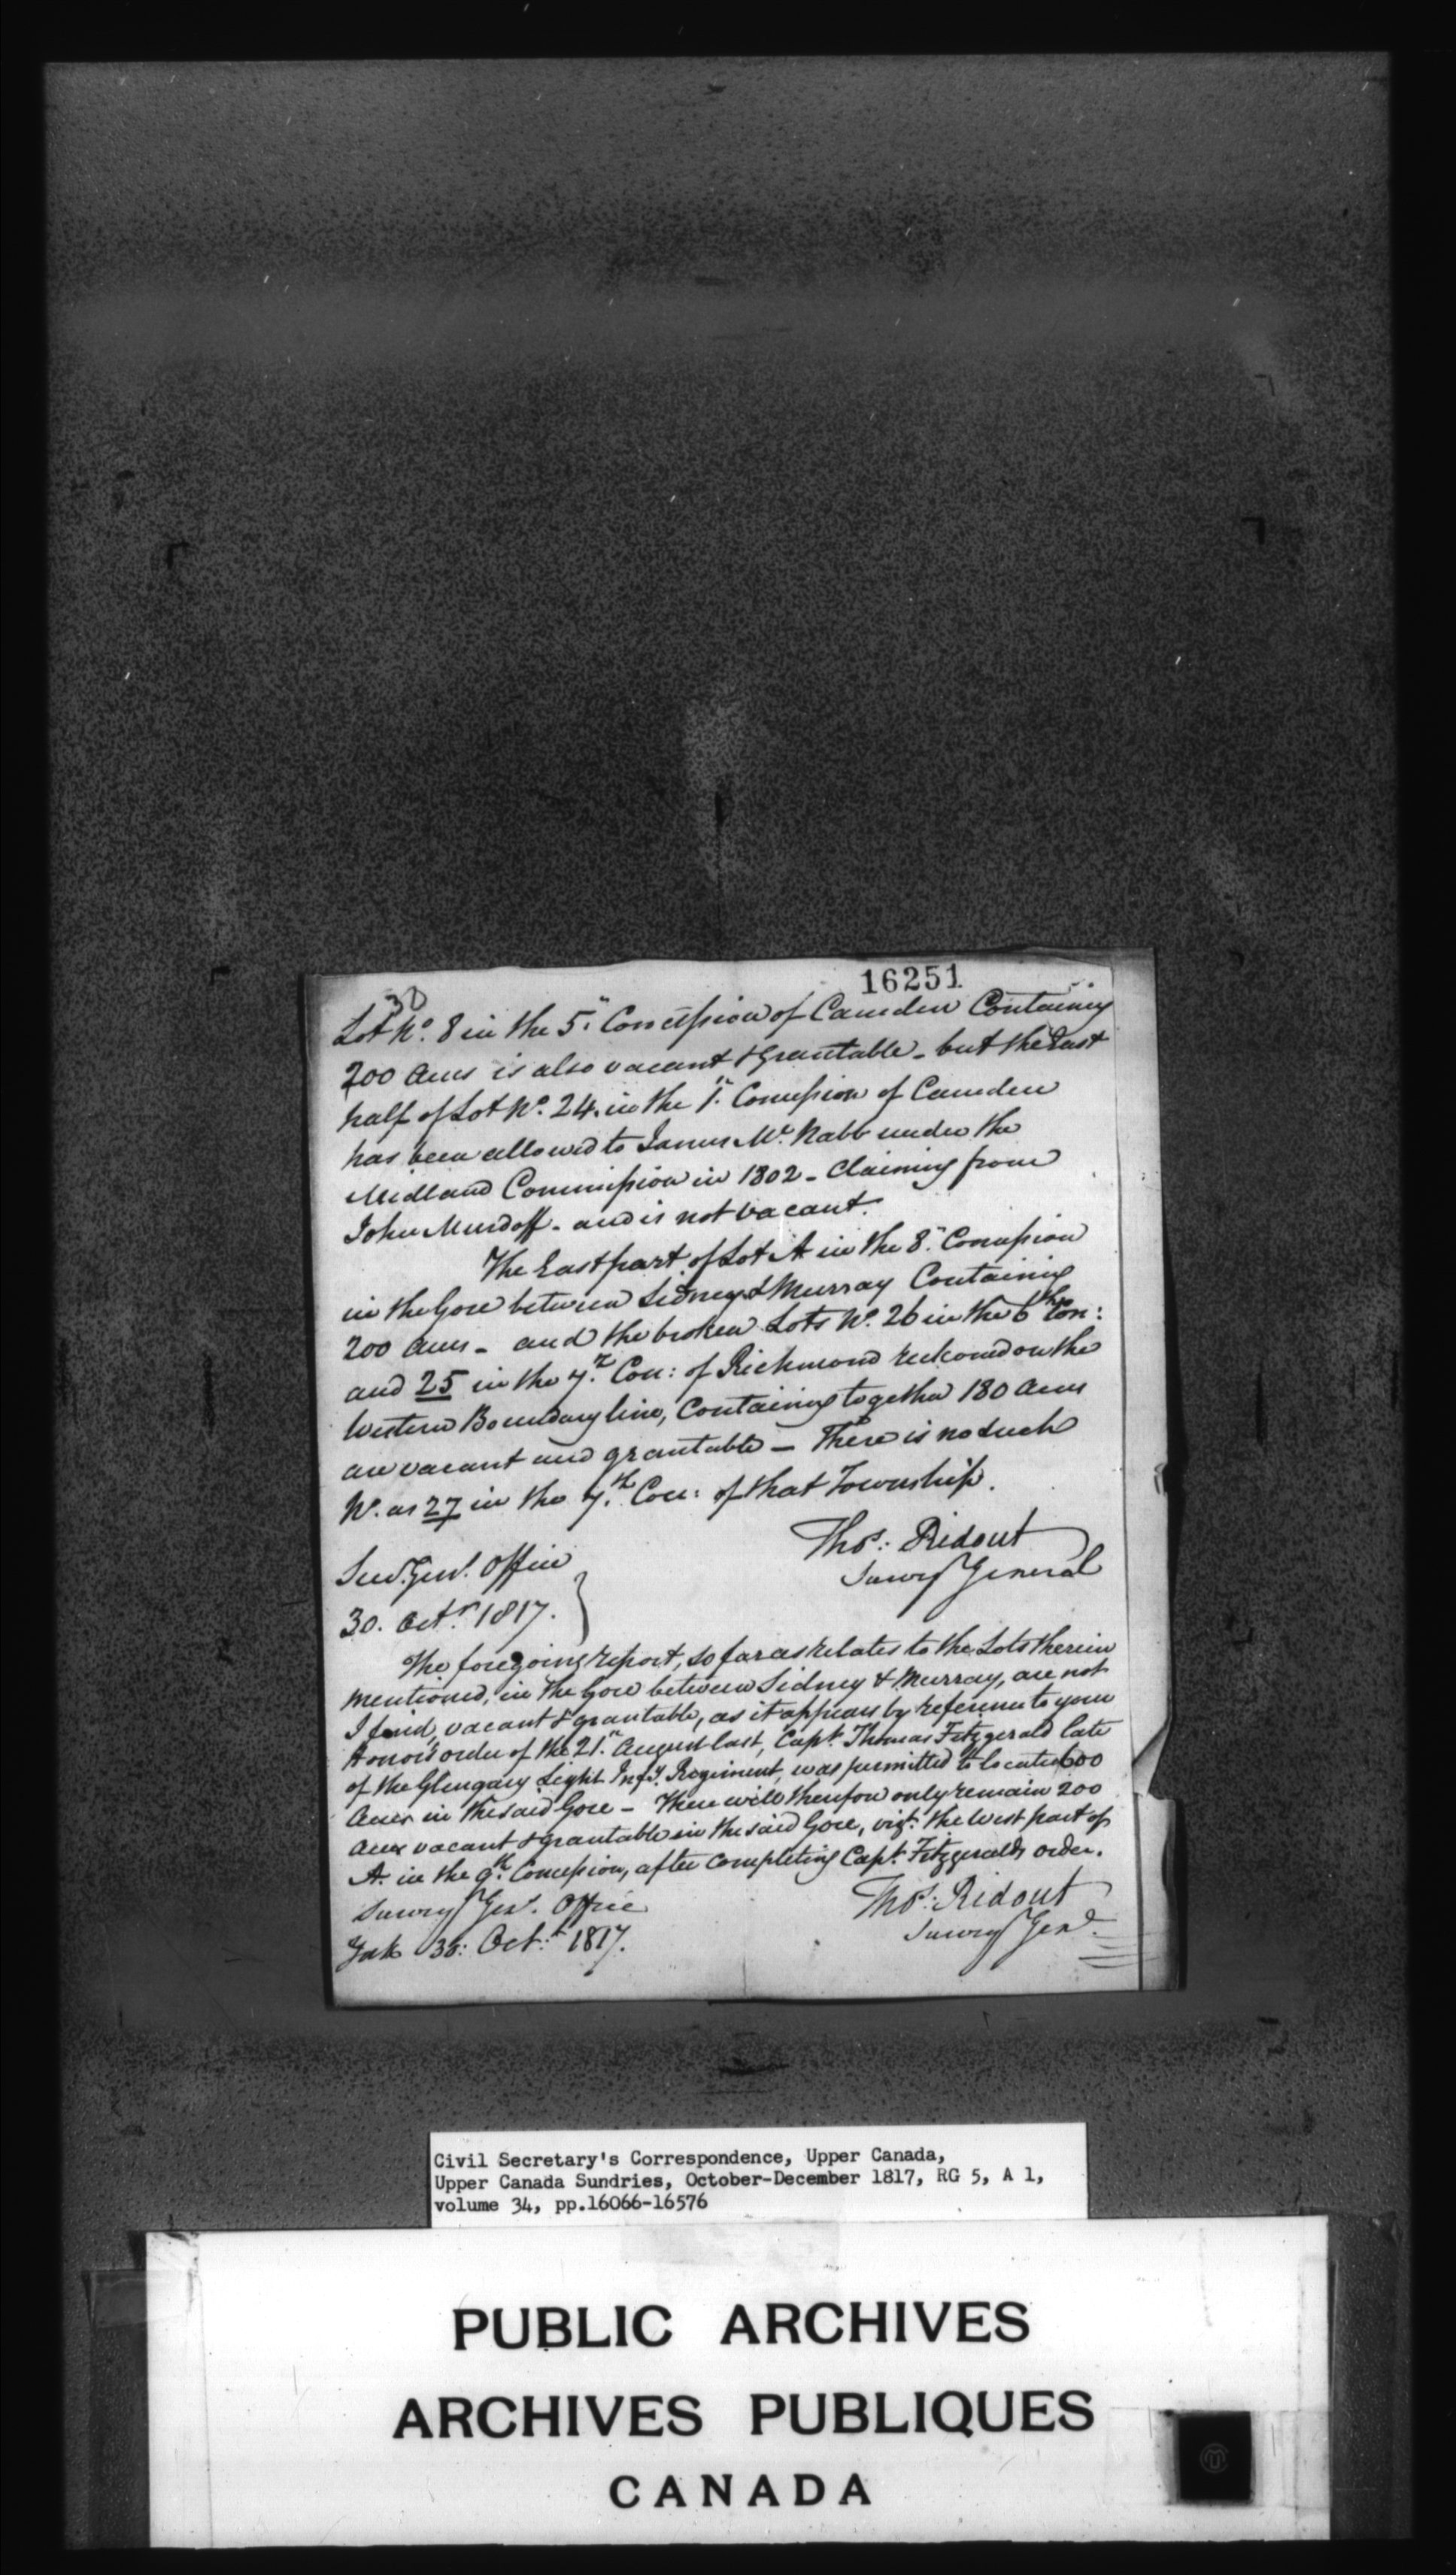 16251
30
Lot No. 8 in the 5th Concession of Camden Containing
200 Acres is also vacant & grantable - but the East
half of Lot No. 24. in the 1st Concession of Camden
has been allowed to James McNabb under the
Midland Commission in 1802 - Claiming from
John Murdoff - and is not vacant.
The East part of Lot A in the 8th Concession
in the Gore between Sidney & Murray Containing
200 Acres - and the broken Lots No. 26 in the 6th Con:
and 25 in the 7th Con: of Richmond reckoned on the
Western Boundary line, Containing together 180 Acres
are vacant and grantable - There is no such
No. as 27 in the 7th Con: of that Township.
Thos: Ridout
Survr General
Sur. Genl. Office
30. Octr. 1817. }
The foregoing report, so far as relates to the Lots therein
mentioned, in the Gore between Sidney & Murray, are not
I find, vacant & grantable, as it appears by reference to your
Honor's order of the 21st August last, Capt. Thomas Fitzgerald late
of the Glengary Light Infy. Regiment, was permitted to locate 600
Acres in the said Gore - There will therefore only remain 200
Acres vacant & grantable in the said Gore, vizt. the West part of
A. in the 9th Concession, after completing Capt. Fitzgeralds order.
Thos: Ridout
Survr Genl.
Survr Genl. Office
York 30: Octr. 1817.
Civil Secretary's Correspondence, Upper Canada,
Upper Canada Sundries, October-December 1817, RG 5, A 1,
volume 34, pp.16066-16576
PUBLIC ARCHIVES
ARCHIVES PUBLIQUES
CANADA